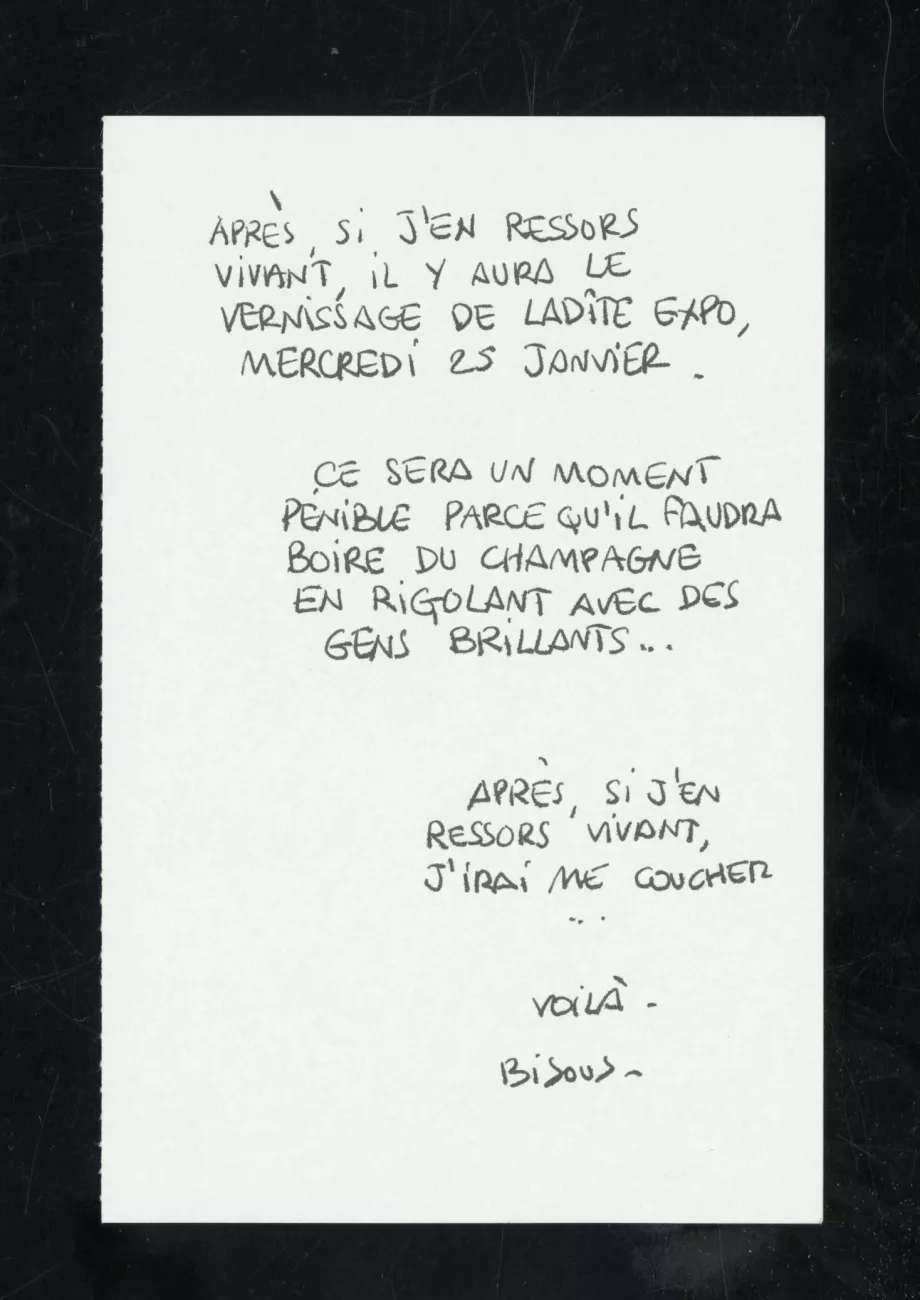 APRÈS, Si J'EN RESSORS
ViVANT, iL Y AURA LE
VERNiSSAGE DE LADÎTE EXPO,
MERCREDi 25 JANViER.
CE SERA UN MOMENT
PÉNiBLE PARCE QU'iL FAUDRA
BOiRE DU CHAMPAGNE
EN RiGOLANT AVEC DES
GENS BRiLLANTS...
APRÈS, Si J'EN
RESSORS ViVANT,
J'iRAi ME COUCHER
...
VOiLÀ-
BiSOUS~